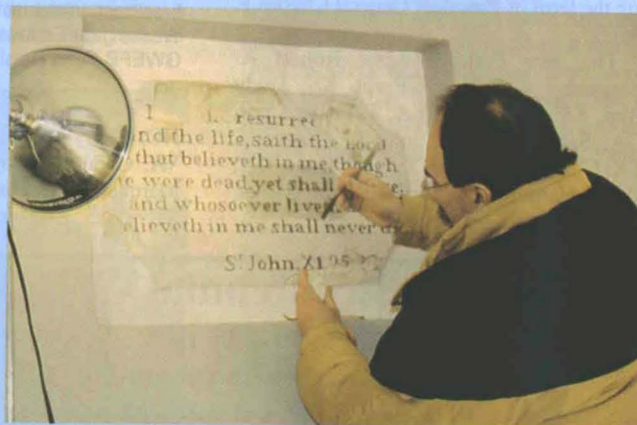 I resurrec
nd the life, saith the Lord
that believeth in me, though
e were dead, yet shall
and whosoever liveth
elieveth in me shall never
St John, XI 25